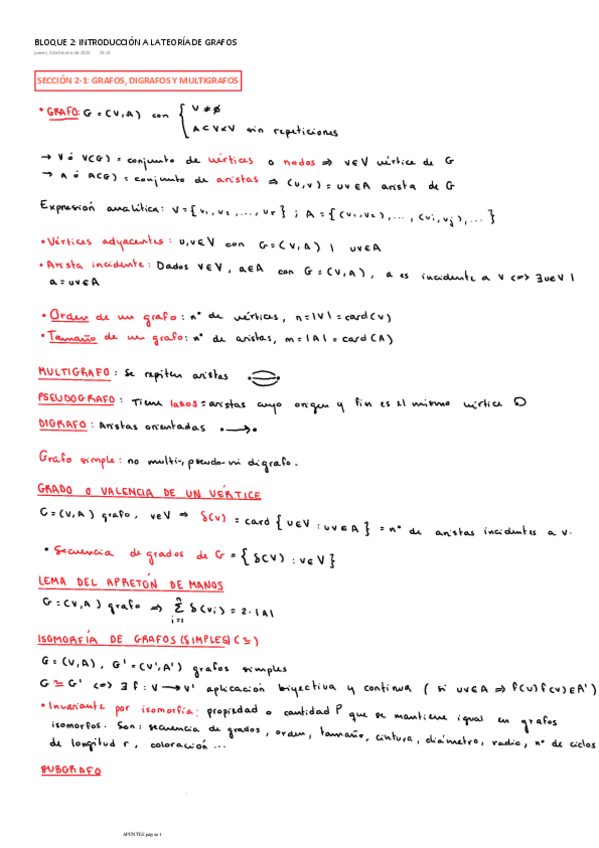 BLOQUE 2: INTRODUCCIÓN A LA TEORÍA DE GRAFOS
jueves, 3 de febrero de 2023
SECCIÓN 2-1: GRAFOS, DIGRAFOS Y MULTIGRAFOS
• GRAFO: G = (V, A) con { V ≠ ∅
A ⊂ V×V sin repeticiones
→ V ó V(G) = conjunto de vértices o nodos ⇒ v∈V vértice de G
→ A ó A(G) = conjunto de aristas ⇒ (u,v) = uv∈A arista de G
Expresión analítica: V = {v₁, v₂, ..., vᵣ} ; A = {(v₁,v₂), ..., (vᵢ,vⱼ), ...}
• Vértices adyacentes: u,v∈V con G = (V, A) | uv∈A
• Arista incidente: Dados v∈V, a∈A con G = (V, A), a es incidente a v <=> ∃u∈V |
a = uv∈A
• Orden de un grafo: nº de vértices, n = |V| = card(V)
• Tamaño de un grafo: nº de aristas, m = |A| = card(A)
MULTIGRAFO: Se repiten aristas
PSEUDOGRAFO: Tiene lazos = aristas cuyo origen y fin es el mismo vértice
DIGRAFO: Aristas orientadas
Grafo simple: no multi-, pseudo- ni digrafo.
GRADO O VALENCIA DE UN VÉRTICE
G = (V, A) grafo, v∈V ⇒ δ(v) = card {u∈V : uv∈A} = nº de aristas incidentes a v.
• Secuencia de grados de G = {δ(v) : v∈V}
LEMA DEL APRETÓN DE MANOS
G = (V, A) grafo ⇒ Σⁿᵢ₌₁ δ(vᵢ) = 2·|A|
ISOMORFÍA DE GRAFOS (SIMPLES) (≃)
G = (V, A), G' = (V', A') grafos simples
G ≃ G' <=> ∃ f : V → V' aplicación biyectiva y continua (si uv∈A ⇒ f(u)f(v)∈A')
• Invariante por isomorfía: propiedad o cantidad P que se mantiene igual en grafos
isomorfos. Son: secuencia de grados, orden, tamaño, cintura, diámetro, radio, nº de ciclos
de longitud r, coloración ...
SUBGRAFO
APUNTES página 1